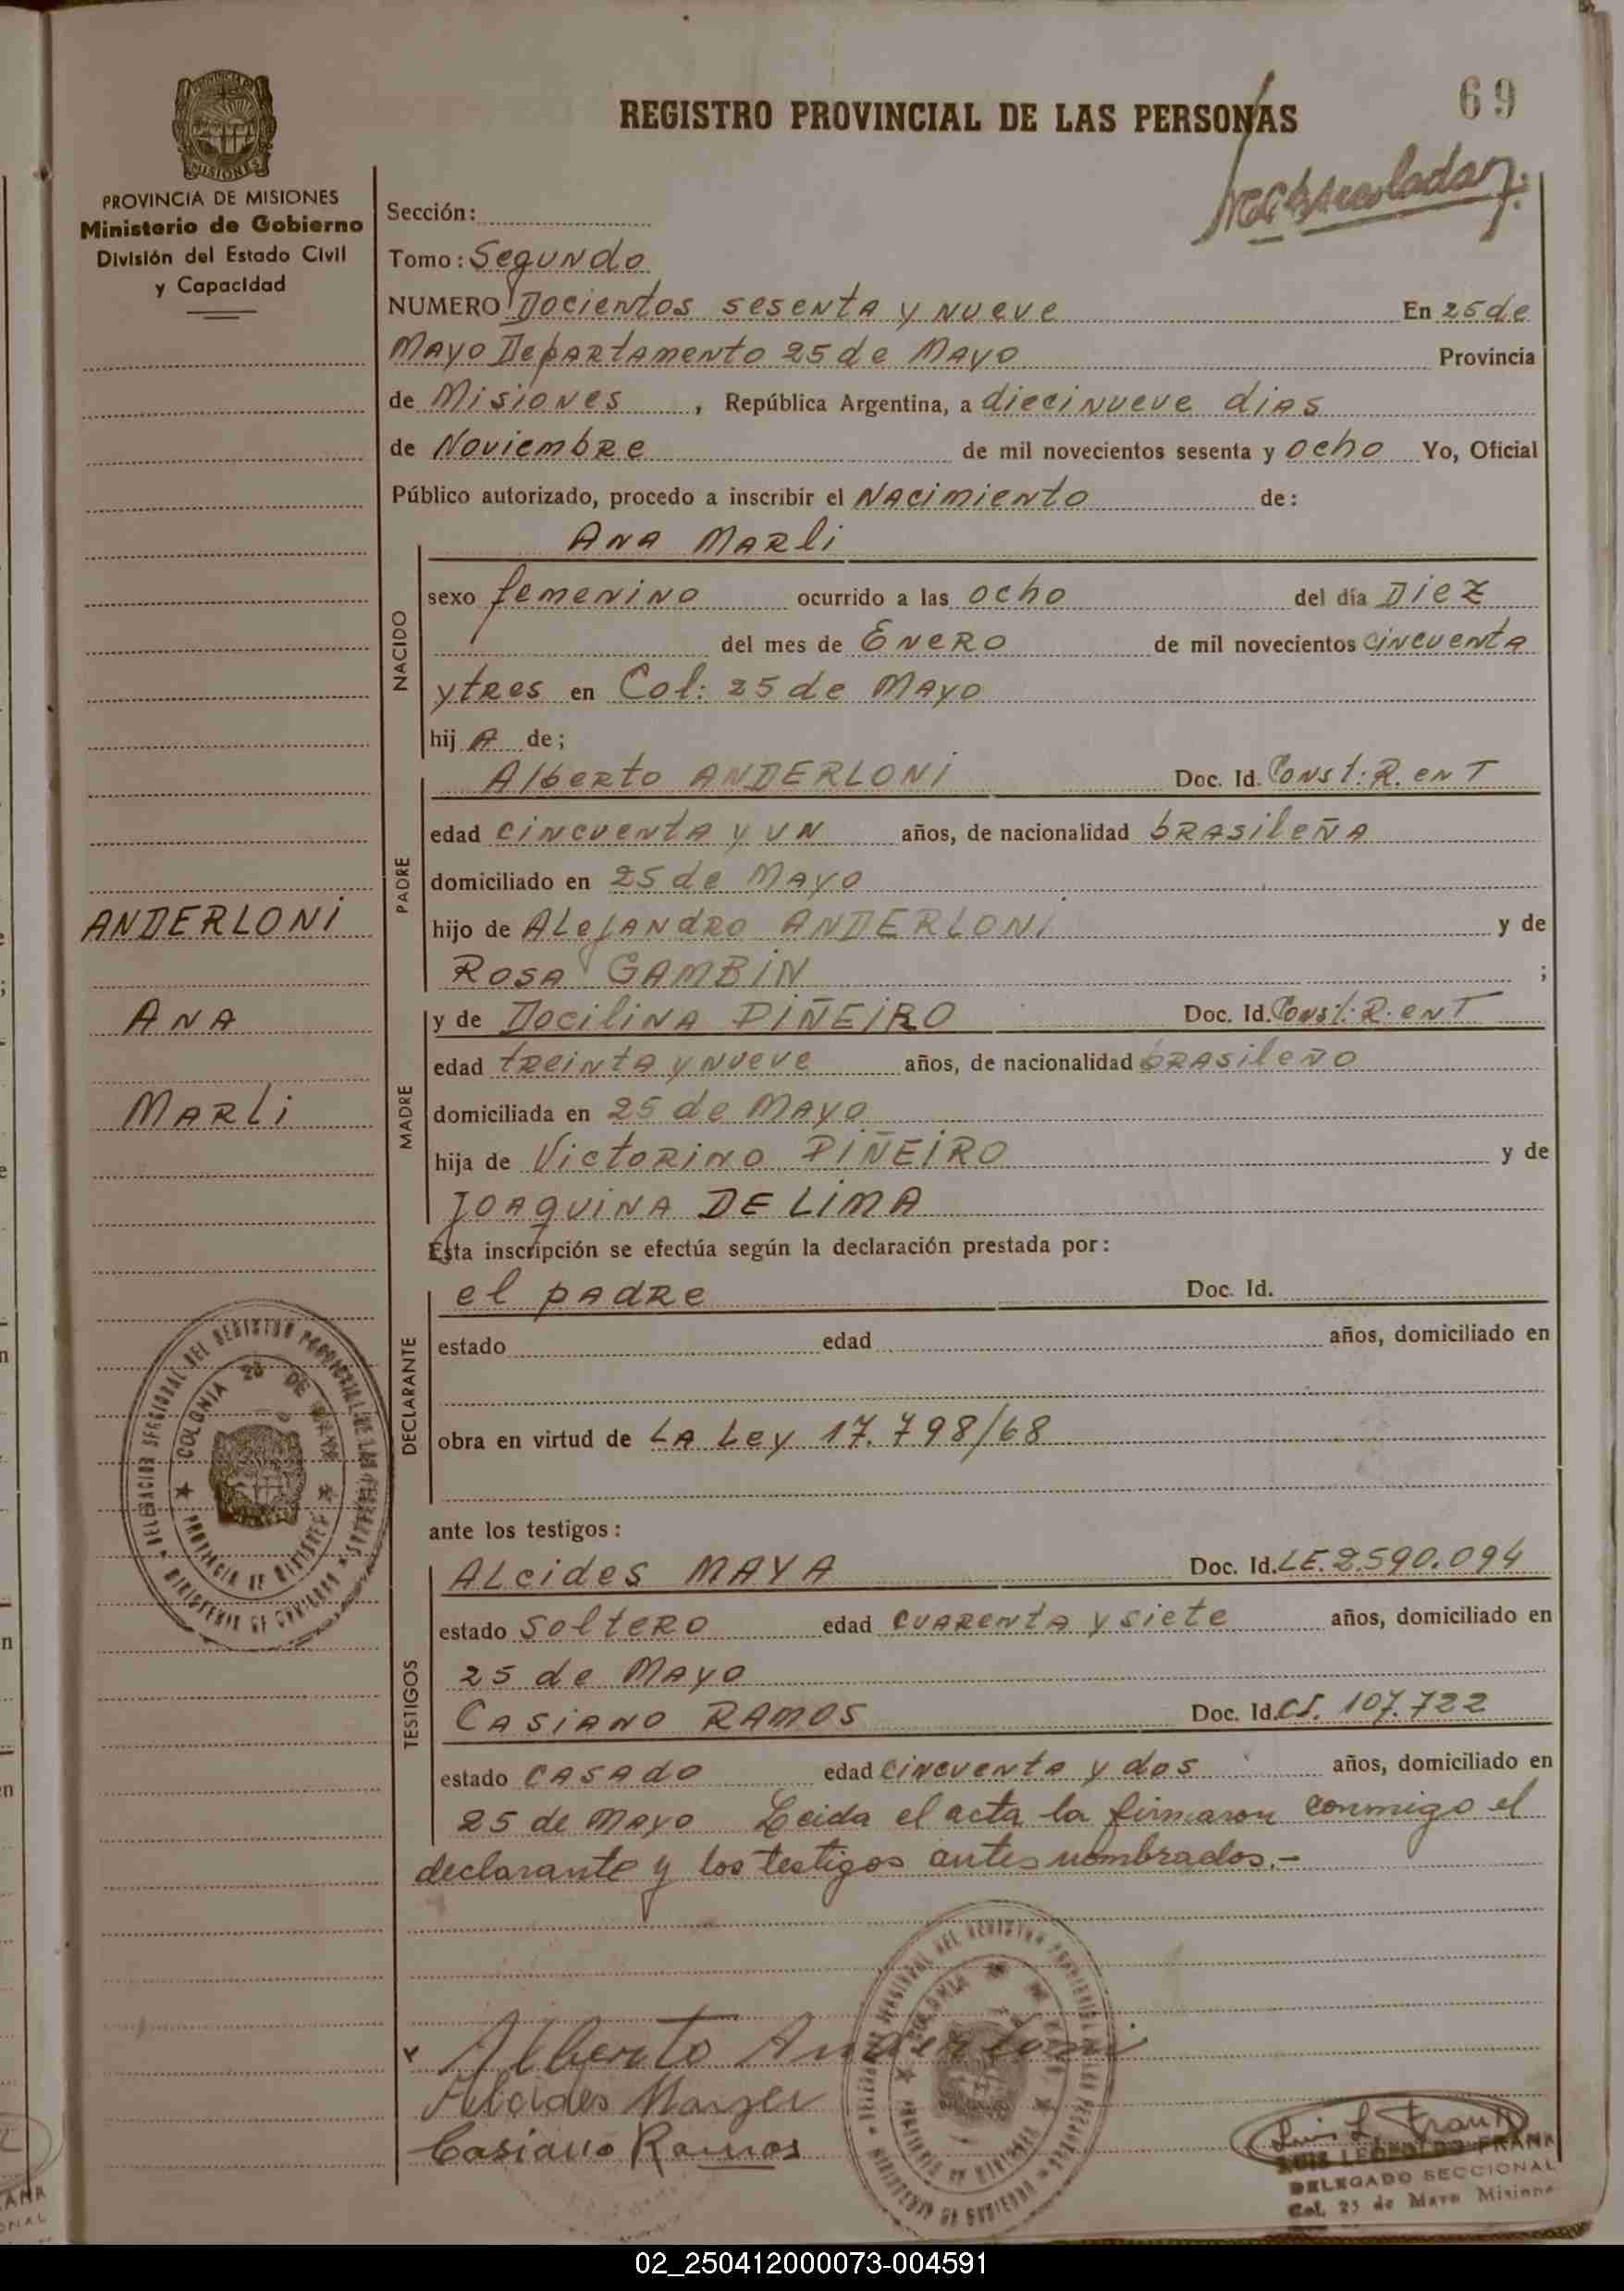 69
REGISTRO PROVINCIAL DE LAS PERSONAS
PROVINCIA DE MISIONES
Ministerio de Gobierno
División del Estado Civil
y Capacidad
Sección:
Tomo: Segundo
NUMERO Docientos sesenta y nueve En 25 de
Mayo Departamento 25 de Mayo Provincia
de Misiones, República Argentina, a diecinueve dias
de Noviembre de mil novecientos sesenta y ocho Yo, Oficial
Público autorizado, procedo a inscribir el Nacimiento de:
NACIDO
Ana Marli
sexo femenino ocurrido a las ocho del día Diez
del mes de Enero de mil novecientos cincuenta
y tres en Col: 25 de Mayo
hij a de;
PADRE
Alberto ANDERLONI Doc. Id. Const: R. en T
edad cincuenta y un años, de nacionalidad brasileña
domiciliado en 25 de Mayo
hijo de Alejandro ANDERLONI y de
Rosa GAMBIN ;
ANDERLONI
Ana
Marli
MADRE
y de Docilina PIÑEIRO Doc. Id. Const: R. en T
edad treinta y nueve años, de nacionalidad brasileño
domiciliada en 25 de Mayo
hija de Victorino PIÑEIRO y de
Joaquina DE LIMA
Esta inscripción se efectúa según la declaración prestada por:
DECLARANTE
el padre Doc. Id.
estado edad años, domiciliado en
obra en virtud de La Ley 17.798/68
ante los testigos:
TESTIGOS
Alcides MAYA Doc. Id. LE. 2.590.094
estado Soltero edad cuarenta y siete años, domiciliado en
25 de Mayo
Casiano RAMOS Doc. Id. CI. 107.722
estado casado edad cincuenta y dos años, domiciliado en
25 de Mayo Leida el acta la firmaron conmigo el
declarante y los testigos antes nombrados.-
DELEGACION SECCIONAL DEL REGISTRO PROVINCIAL DE LAS PERSONAS
MINISTERIO DE GOBIERNO
COLONIA 25 DE MAYO
PROVINCIA DE MISIONES
Alberto Anderloni
Alcides
Casiano Ramos
Luis L. Frank
LUIS LEOPOLDO FRANK
DELEGADO SECCIONAL
Col. 25 de Mayo Misiones
02_250412000073-004591